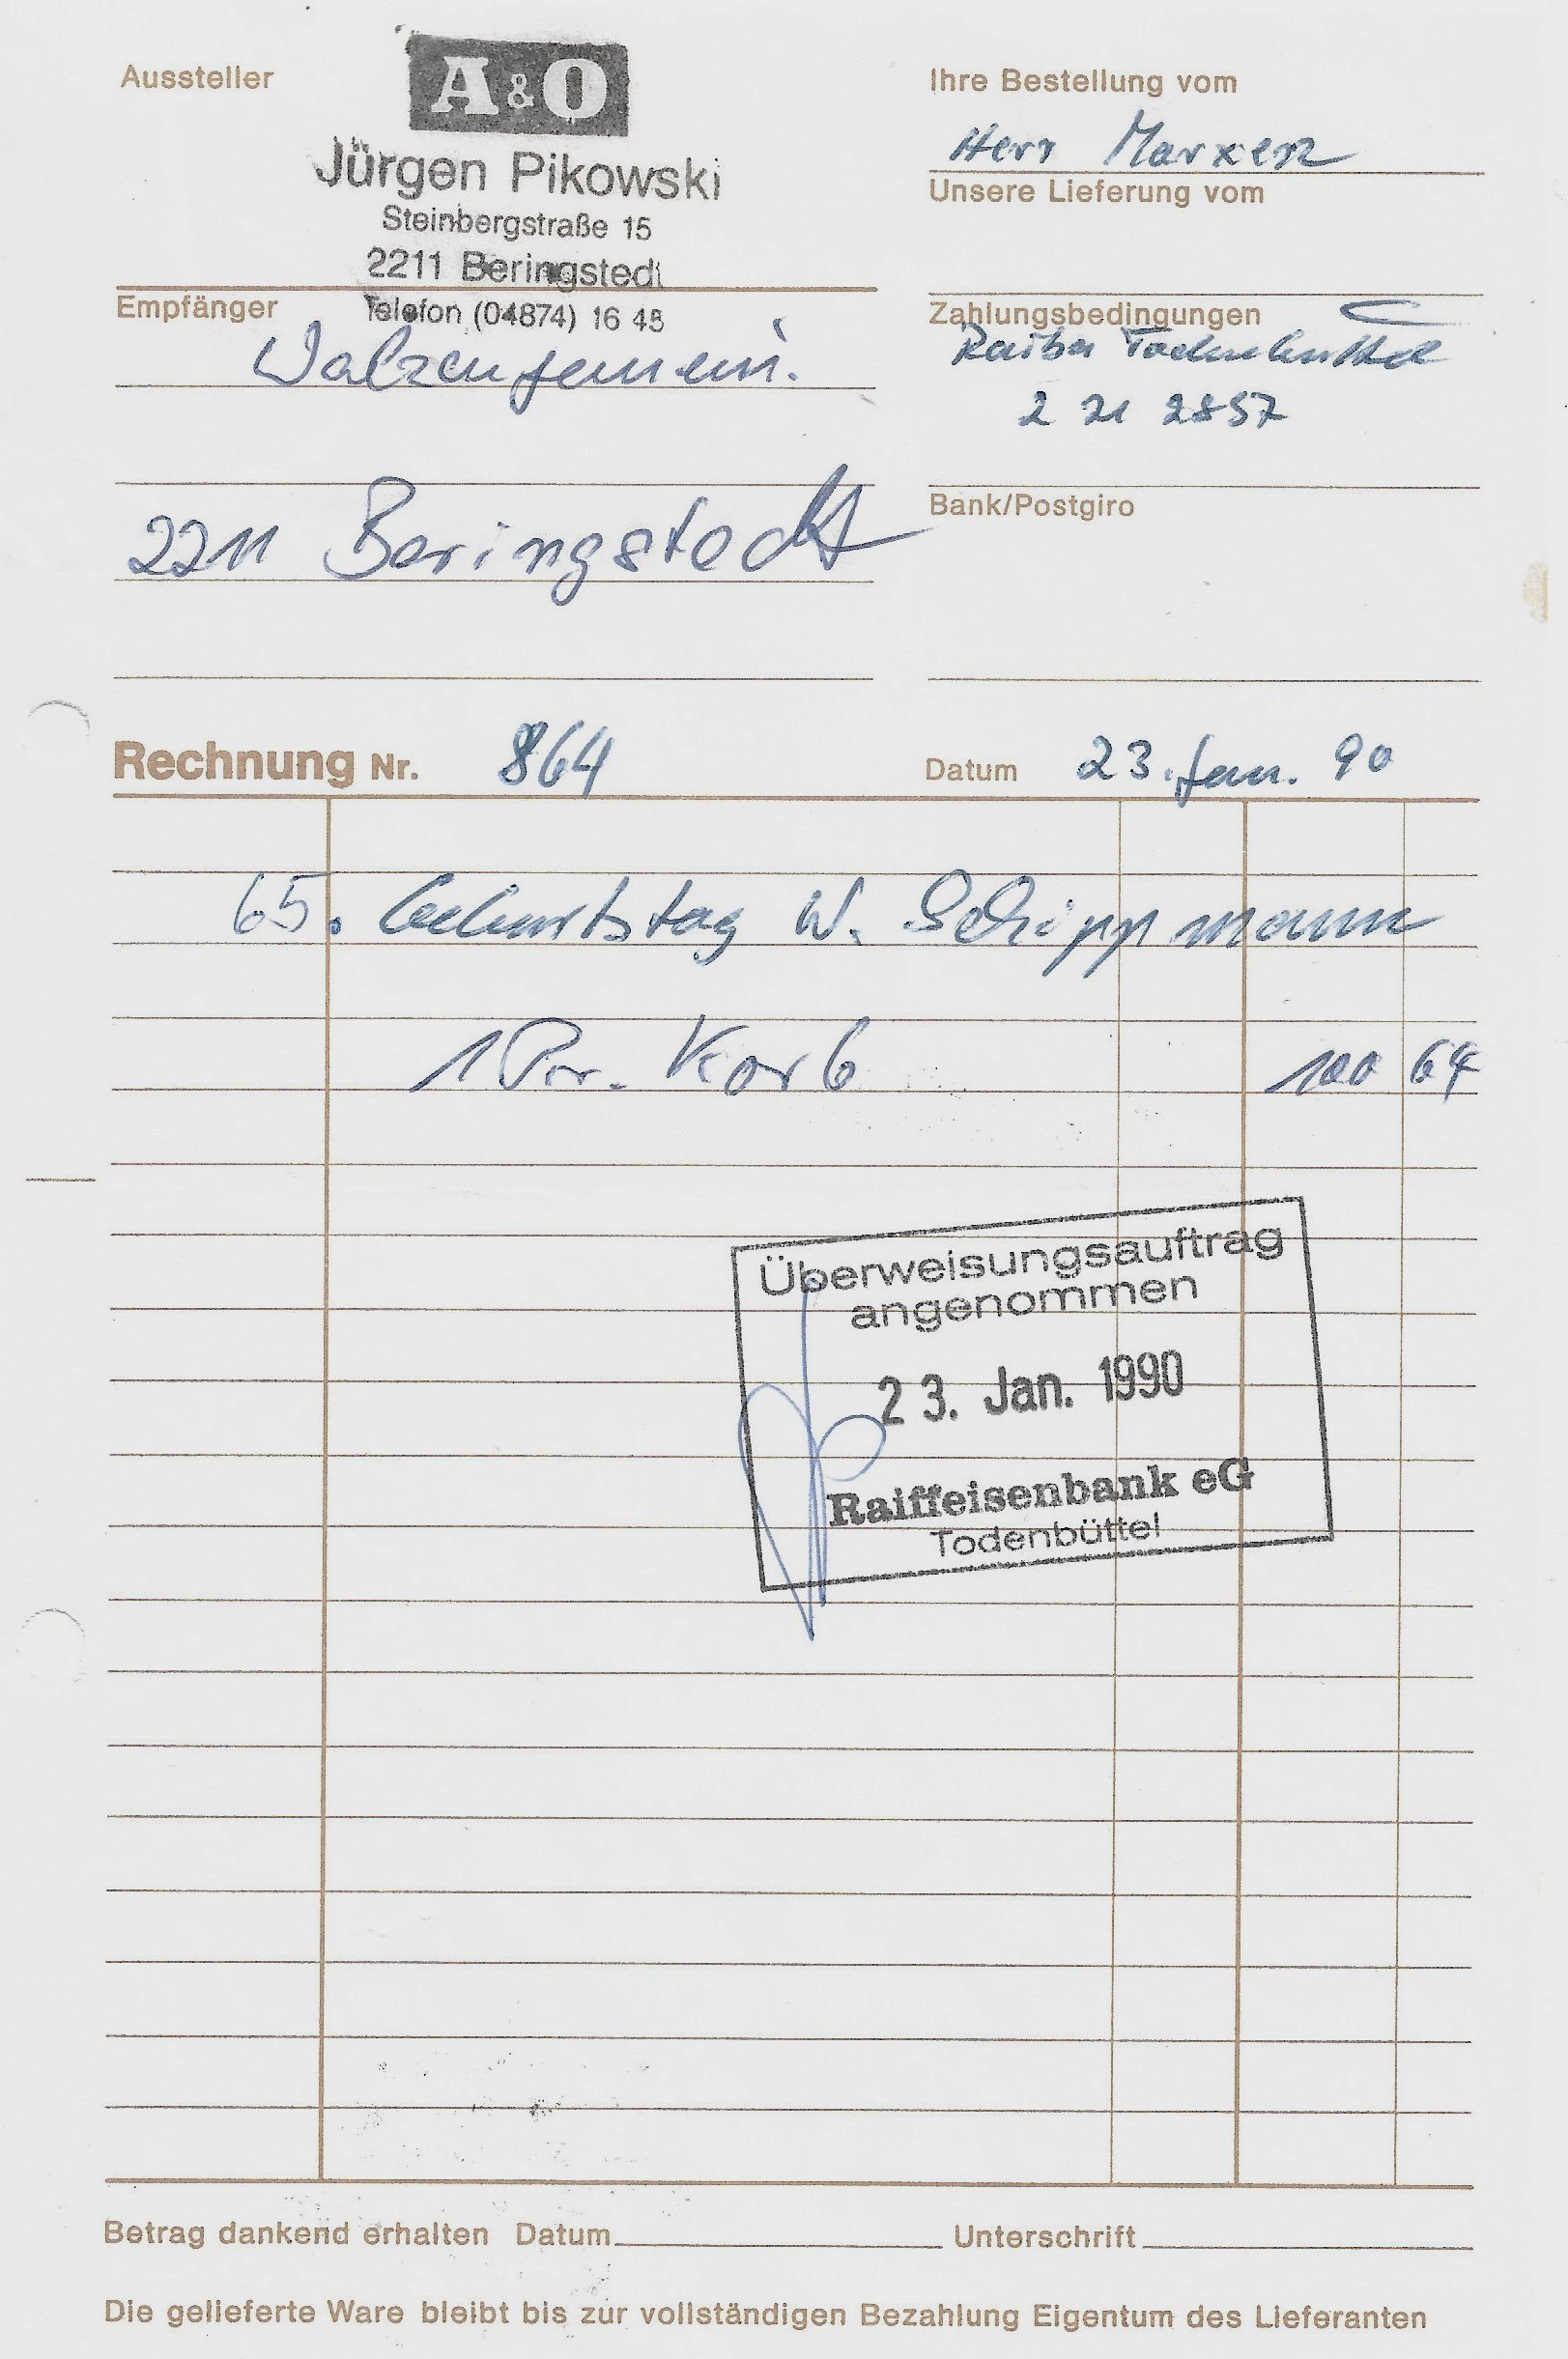 Aussteller
A&O
Jürgen Pikowski
Steinbergstraße 15
2211 Beringstedt
Telefon (04874) 16 48
Ihre Bestellung vom
Herr Marxen
Unsere Lieferung vom
Empfänger
Walzengemein.
2211 Beringstedt
Zahlungsbedingungen
Raiba Todenbüttel
2 21 2857
Bank/Postgiro
Rechnung Nr. 864
Datum 23. Jan. 90
65. Geburtstag W. Schippmann
1 Pr. Korb 100 64
Überweisungsauftrag
angenommen
23. Jan. 1990
Raiffeisenbank eG
Todenbüttel
Betrag dankend erhalten Datum
Unterschrift
Die gelieferte Ware bleibt bis zur vollständigen Bezahlung Eigentum des Lieferanten